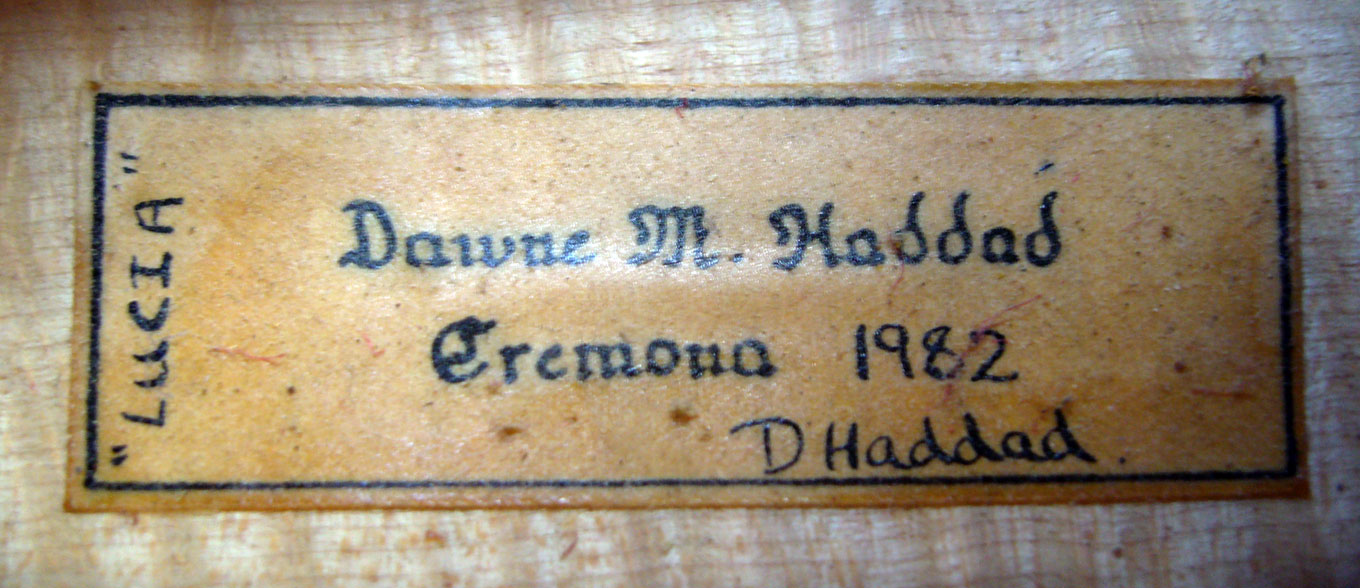 "LUCIA"
Dawne M. Haddad
Cremona 1982
D Haddad.